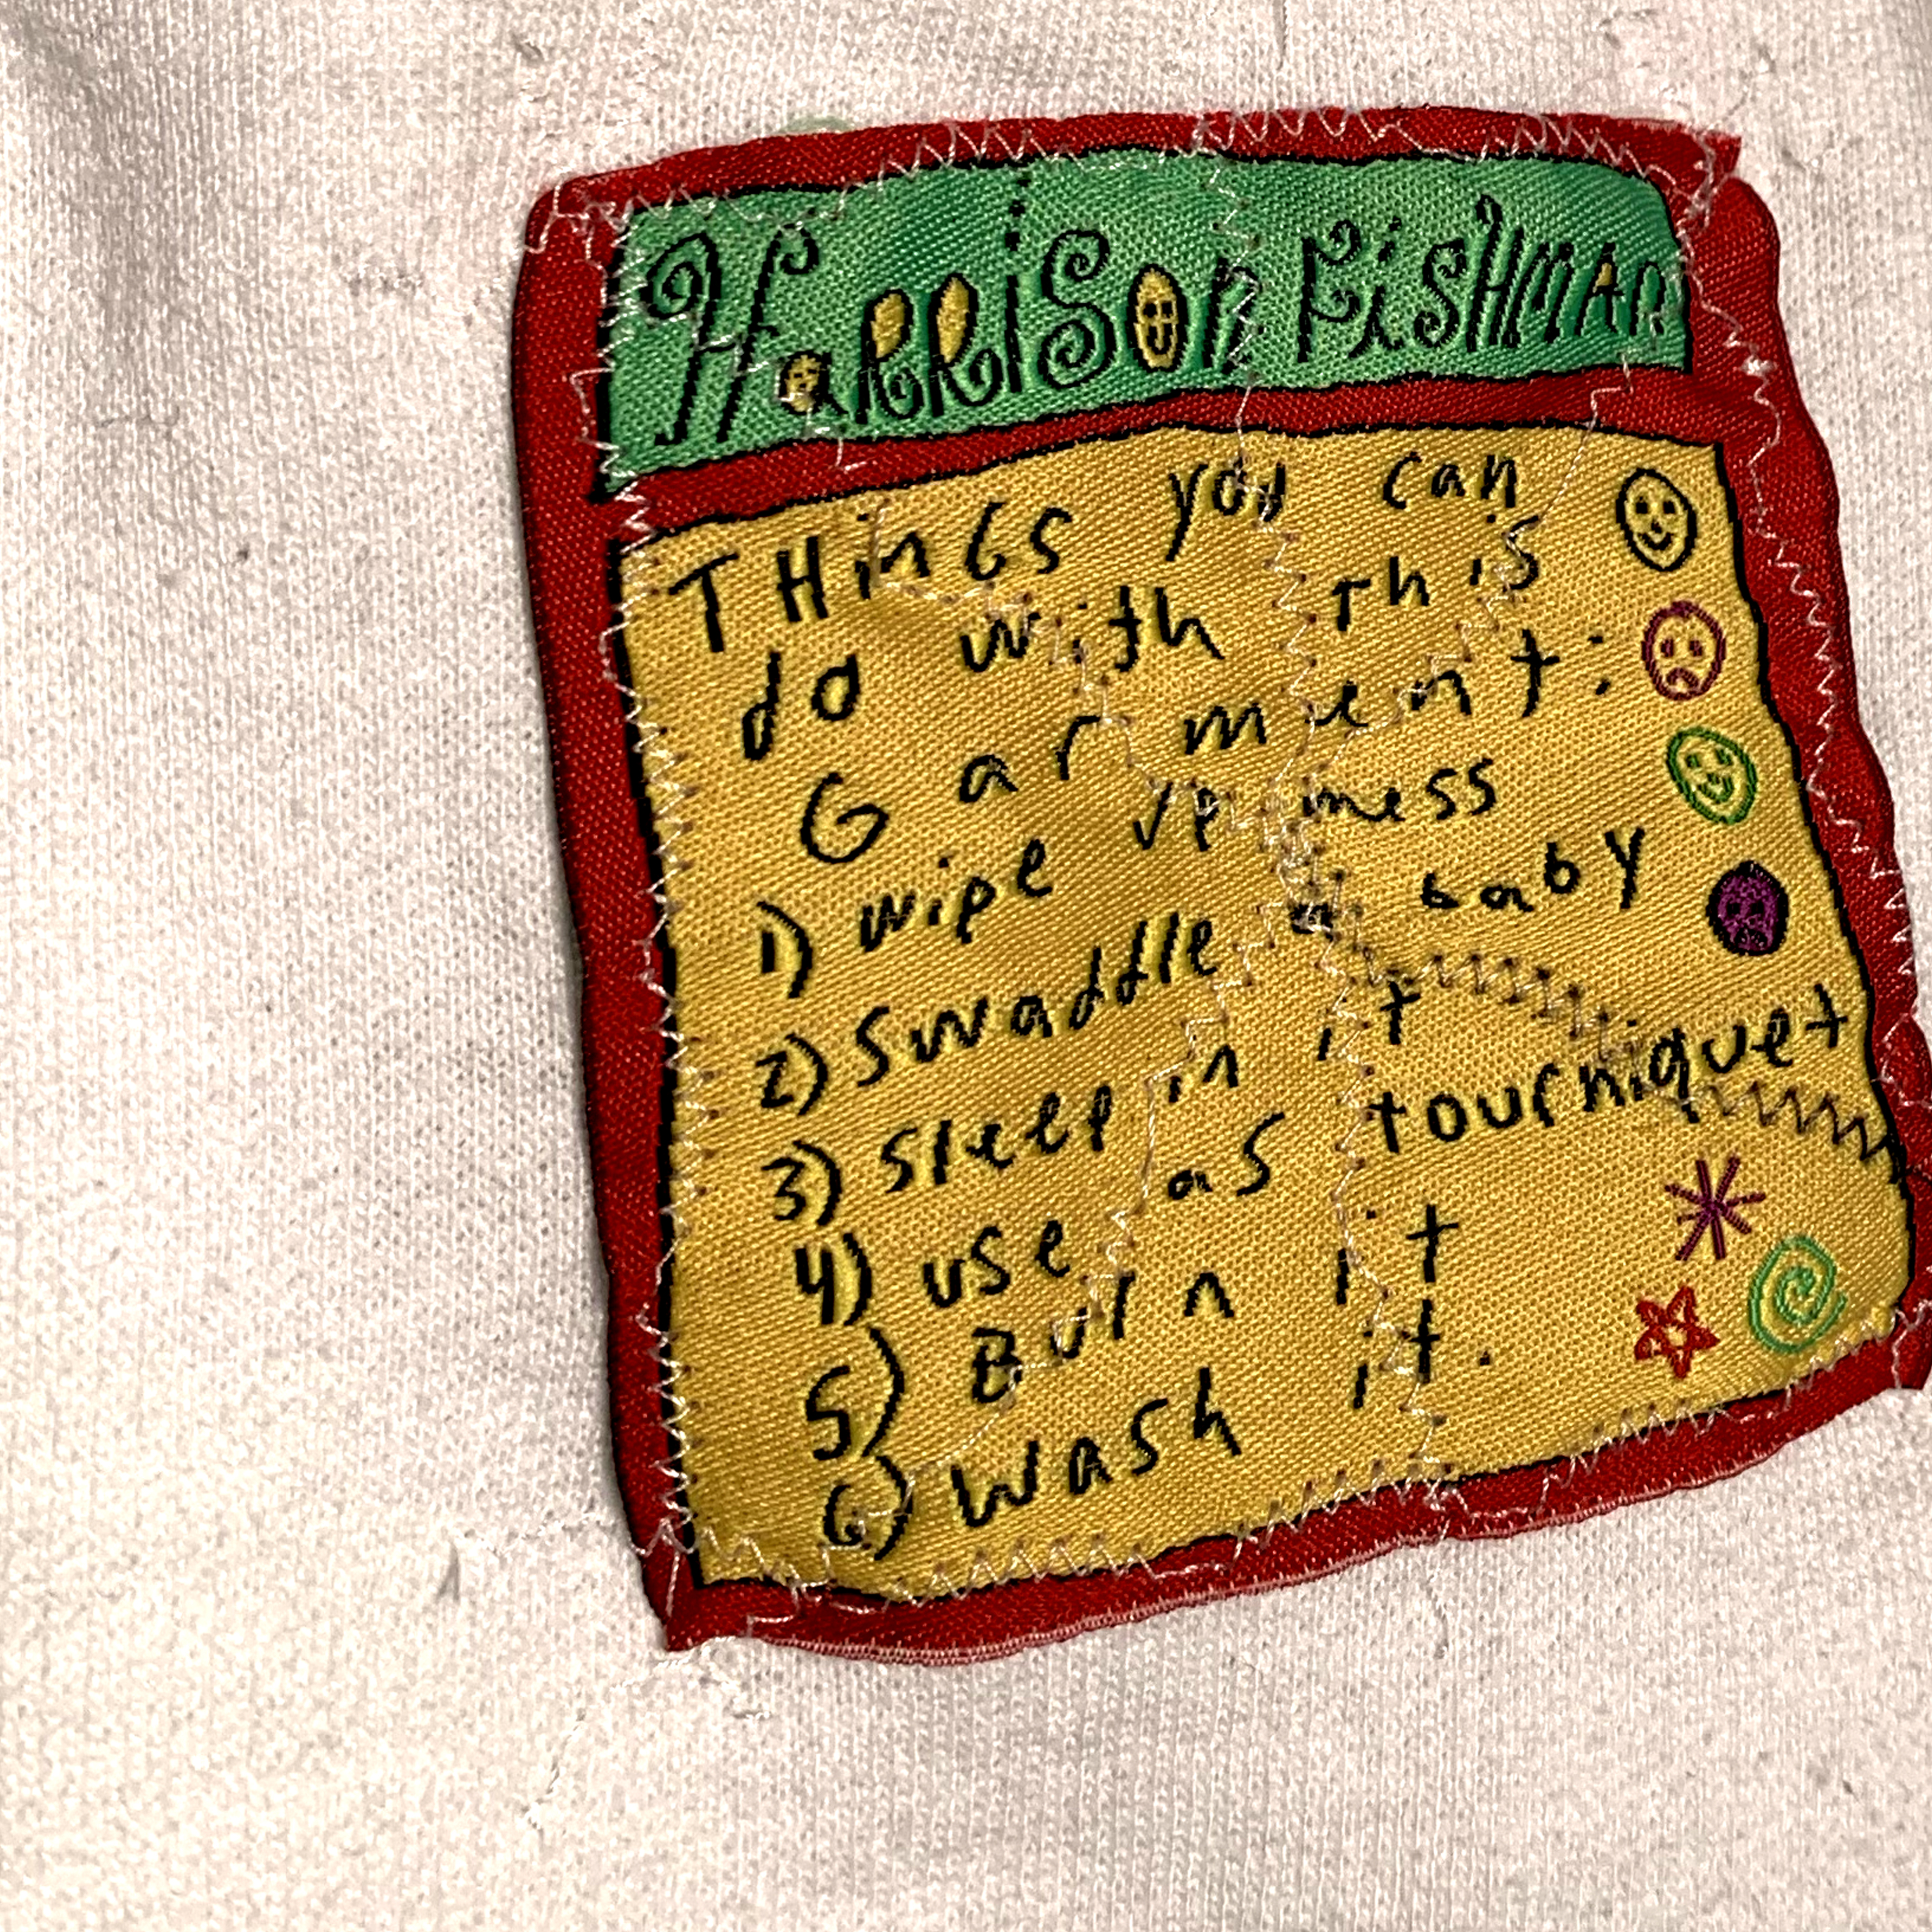 HaRRiSOn FiSHMAn
THinGS you can
do with This
Garment:
1) wipe up mess
2) Swaddle a baby
3) Sleep in it
4) use as tourniquet
5) Burn it
6) Wash it.